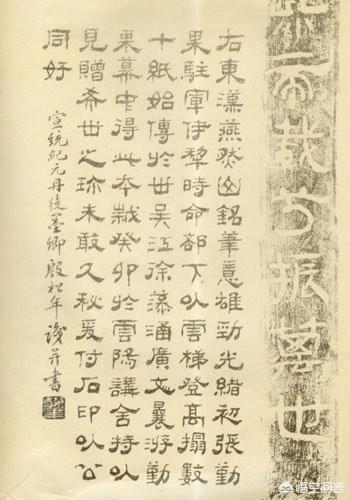 帝載兮振萬世
右東漢燕然山銘筆意雄勁光緒初張勤
果駐軍伊犂時命部下以雲梯登高搨數
十紙始傳於世吳江徐藻涵廣文曩游勤
果幕中得此本越癸卯於雲陽講舍持以
見贈希世之珎未敢久秘爰付石印以公
同好
宣統紀元丹徒墨卿殷松年識并書
悟空问答